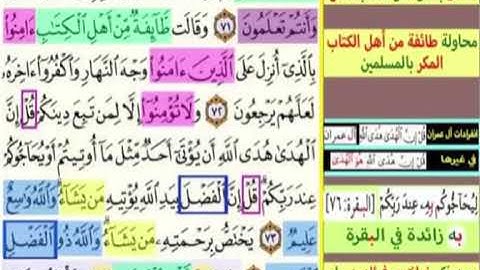 وَأَنتُمْ تَعْلَمُونَ ٧١ وَقَالَت طَّآئِفَةٌ مِّنْ أَهْلِ الْكِتَٰبِ ءَامِنُوا۟
بِالَّذِىٓ أُنزِلَ عَلَى الَّذِينَ ءَامَنُوا۟ وَجْهَ النَّهَارِ وَاكْفُرُوٓا۟ ءَاخِرَهُۥ
لَعَلَّهُمْ يَرْجِعُونَ ٧٢ وَلَا تُؤْمِنُوٓا۟ إِلَّا لِمَن تَبِعَ دِينَكُمْ قُلْ إِنَّ
الْهُدَىٰ هُدَى اللَّهِ أَن يُؤْتَىٰٓ أَحَدٌ مِّثْلَ مَآ أُوتِيتُمْ أَوْ يُحَآجُّوكُمْ
عِندَ رَبِّكُمْ قُلْ إِنَّ الْفَضْلَ بِيَدِ اللَّهِ يُؤْتِيهِ مَن يَشَآءُ وَاللَّهُ وَٰسِعٌ
عَلِيمٌ ٧٣ يَخْتَصُّ بِرَحْمَتِهِۦ مَن يَشَآءُ وَاللَّهُ ذُو الْفَضْلِ
محاولة طائفة من أهل الكتاب
المكر بالمسلمين
انفرادات آل عمران
قُلْ إِنَّ الْهُدَىٰ هُدَى اللَّهِ
آل عمران
في غيرها
قُلْ إِنَّ هُدَى اللَّهِ هُوَ الْهُدَىٰ
لِيُحَآجُّوكُم بِهِۦ عِندَ رَبِّكُمْ [البقرة: ٧٦]
به زائدة في البقرة